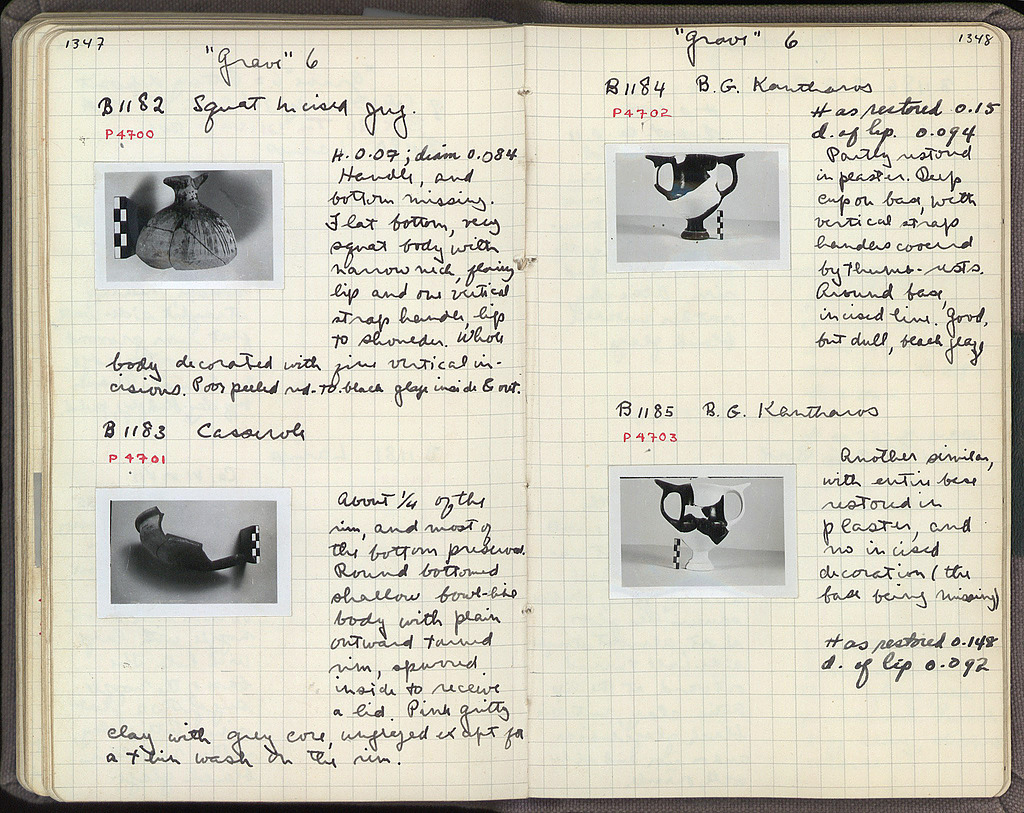 1347
"Grave" 6
B 1182 Squat Incised Jug.
P 4700
H. 0.07; diam 0.084
Handle, and
bottom missing.
Flat bottom, very
squat body with
narrow neck, flaring
lip and one vertical
strap handle, lip
to shoulder. Whole
body decorated with fine vertical in-
cisions. Poor peeled red-to-black glaze inside & out.
B 1183 Casserole
P 4701
About 1/4 of the
rim, and most of
the bottom preserved.
Round bottomed
shallow bowl-like
body with plain
outward turned
rim, spurred
inside to receive
a lid. Pink gritty
clay with grey core, unglazed except for
a thin wash on the rim.
1348
"Grave" 6
B 1184 B.G. Kantharos
P 4702
H as restored 0.15
d. of lip. 0.094
Partly restored
in plaster. Deep
cup on base, with
vertical strap
handles covered
by thumb-rests.
Around base,
incised line. Good,
but dull, black glaze
B 1185 B.G. Kantharos
P 4703
Another similar,
with entire base
restored in
plaster, and
no incised
decoration (the
base being missing)
H as restored 0.148
d. of lip 0.092